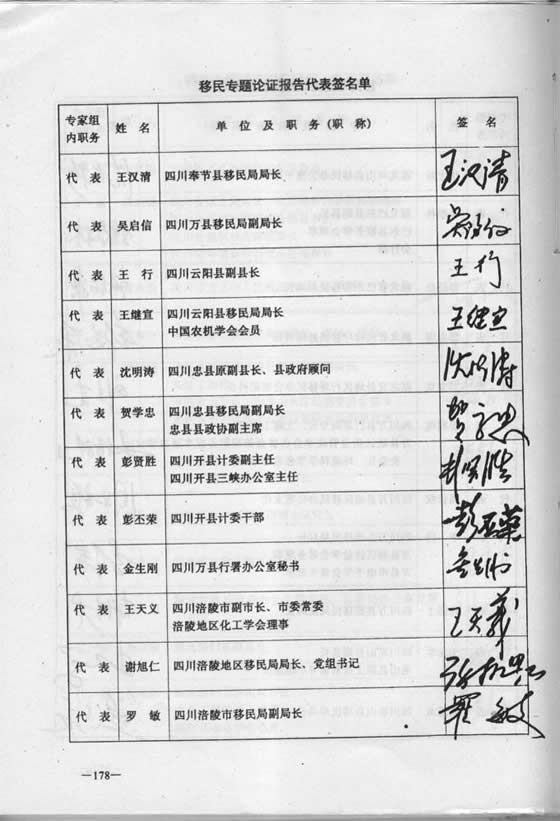 移民专题论证报告代表签名单
专家组内职务 姓 名 单 位 及 职 务（职 称） 签 名
代 表 王汉清 四川奉节县移民局局长 王汉清
代 表 吴启信 四川万县移民局副局长
代 表 王 行 四川云阳县副县长 王行
代 表 王继宣 四川云阳县移民局局长 王继宣
中国农机学会会员
代 表 沈明涛 四川忠县原副县长、县政府顾问 沈明涛
代 表 贺学忠 四川忠县移民局副局长 贺学忠
忠县县政协副主席
代 表 彭贤胜 四川开县计委副主任 彭贤胜
四川开县三峡办公室主任
代 表 彭丕荣 四川开县计委干部 彭丕荣
代 表 金生刚 四川万县行署办公室秘书
代 表 王天义 四川涪陵市副市长、市委常委 王天义
涪陵地区化工学会理事
代 表 谢旭仁 四川涪陵地区移民局局长、党组书记
代 表 罗 敏 四川涪陵市移民局副局长 罗敏
—178—